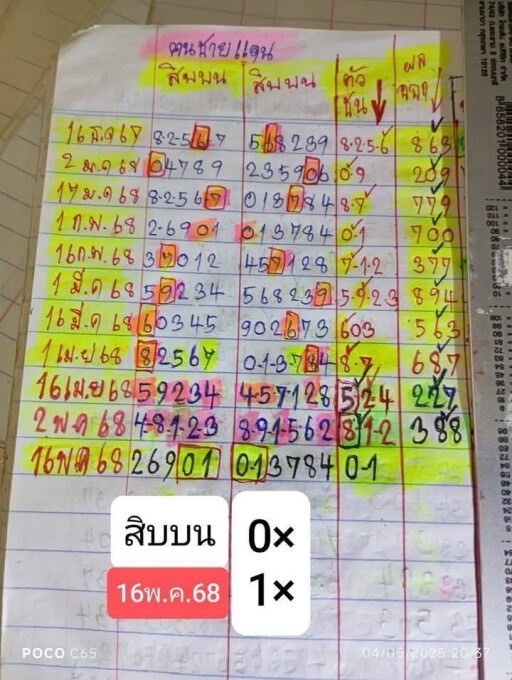 คนชายแดน
สิบบน สิบบน ตัว ผล
ชน ออก
16 ธ.ค 67 8-2-5667 568239 8-2-5-6 868
2 ม.ค 68 04789 235906 0-9 209
17 ม.ค 68 8-2-567 018784 8-7 779
1 ก.พ. 68 2-6901 013784 0-1 700
16 ก.พ. 68 37012 457128 7-1-2 377
1 มี.ค 68 59234 568239 5-9-2-3 894
16 มี.ค 68 60345 902673 603 563
1 เม.ย 68 82567 0-1-3784 8-7 687
16 เม.ย 68 59234 45-7-128 524 227
2 พ.ค 68 4-8-1-23 89-1-562 81-2 388
16 พ.ค 68 26901 0-13784 0-1
สิบบน 0×
16พ.ค.68 1×
POCO C65 04/05/2025 20:37